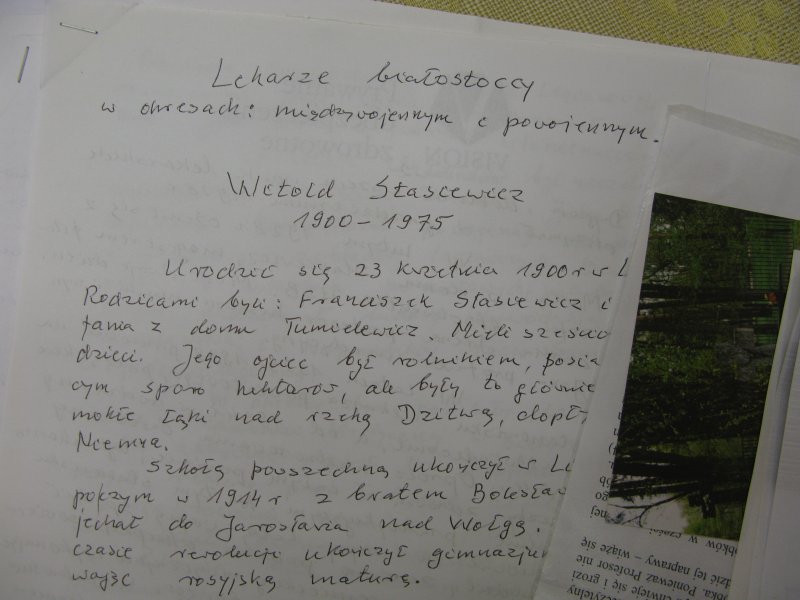 Lekarze białostoccy
w okresach: międzywojennym i powojennym.
Witold Stasiewicz
1900-1975
Urodził się 23 kwietnia 1900 r w L
Rodzicami byli: Franciszek Stasiewicz i
fania z domu Tumielewicz. Mieli sześcio
dzieci. Jego ojciec był rolnikiem, posia
cym sporo hektarów, ale były to głównie
mokłe łąki nad rzeką Dzitwą, dopł
Niemna.
Szkołę powszechną ukończył w Li
poczym w 1914 r z bratem Bolesław
jechał do Jarosławia nad Wołgą.
czasie rewolucji ukończył gimnazjum
rosyjską maturę.
obków w części
dzić tej naprawy – wiąże się
bka. Ponieważ Profesor nie
chwieje się i grozi